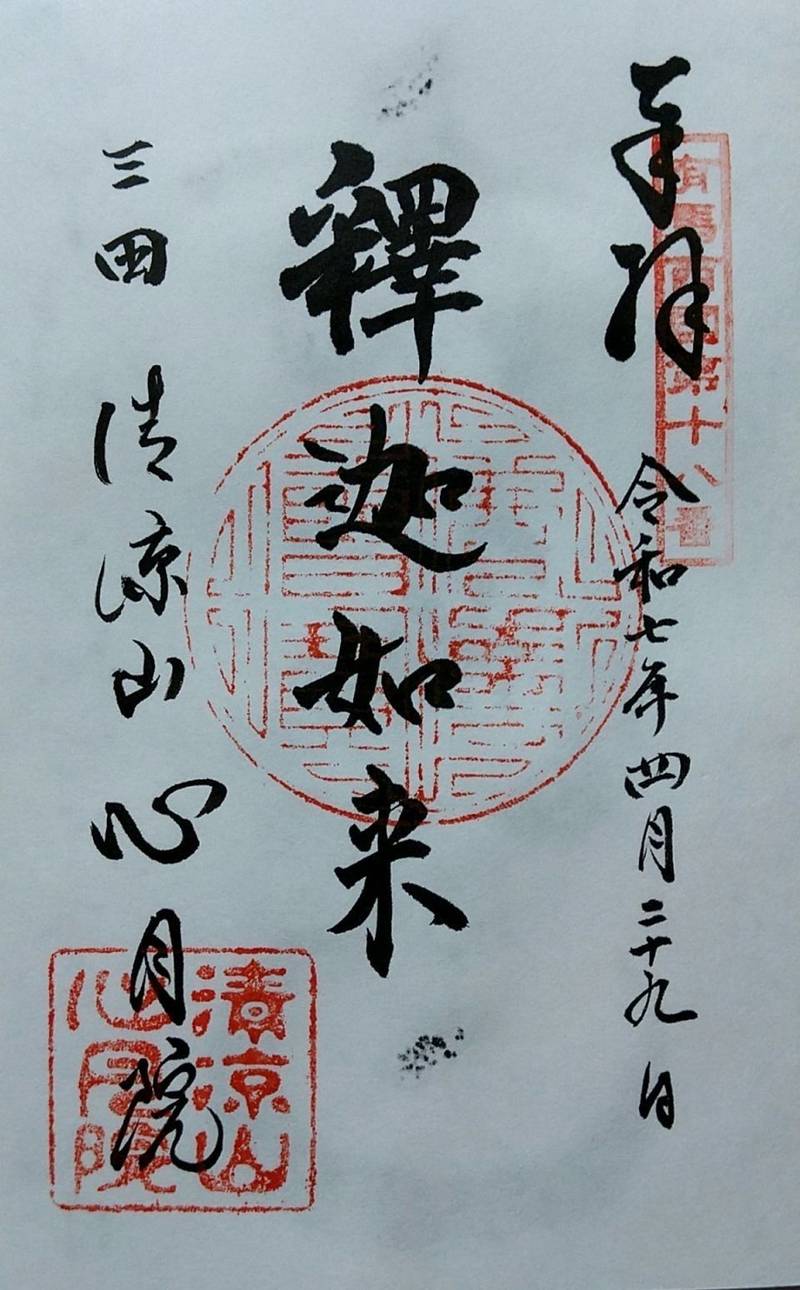 奉拝
有馬西国第十八番
令和七年四月二十九日
釋迦如来
三田 清涼山 心月院
清涼山
心月院